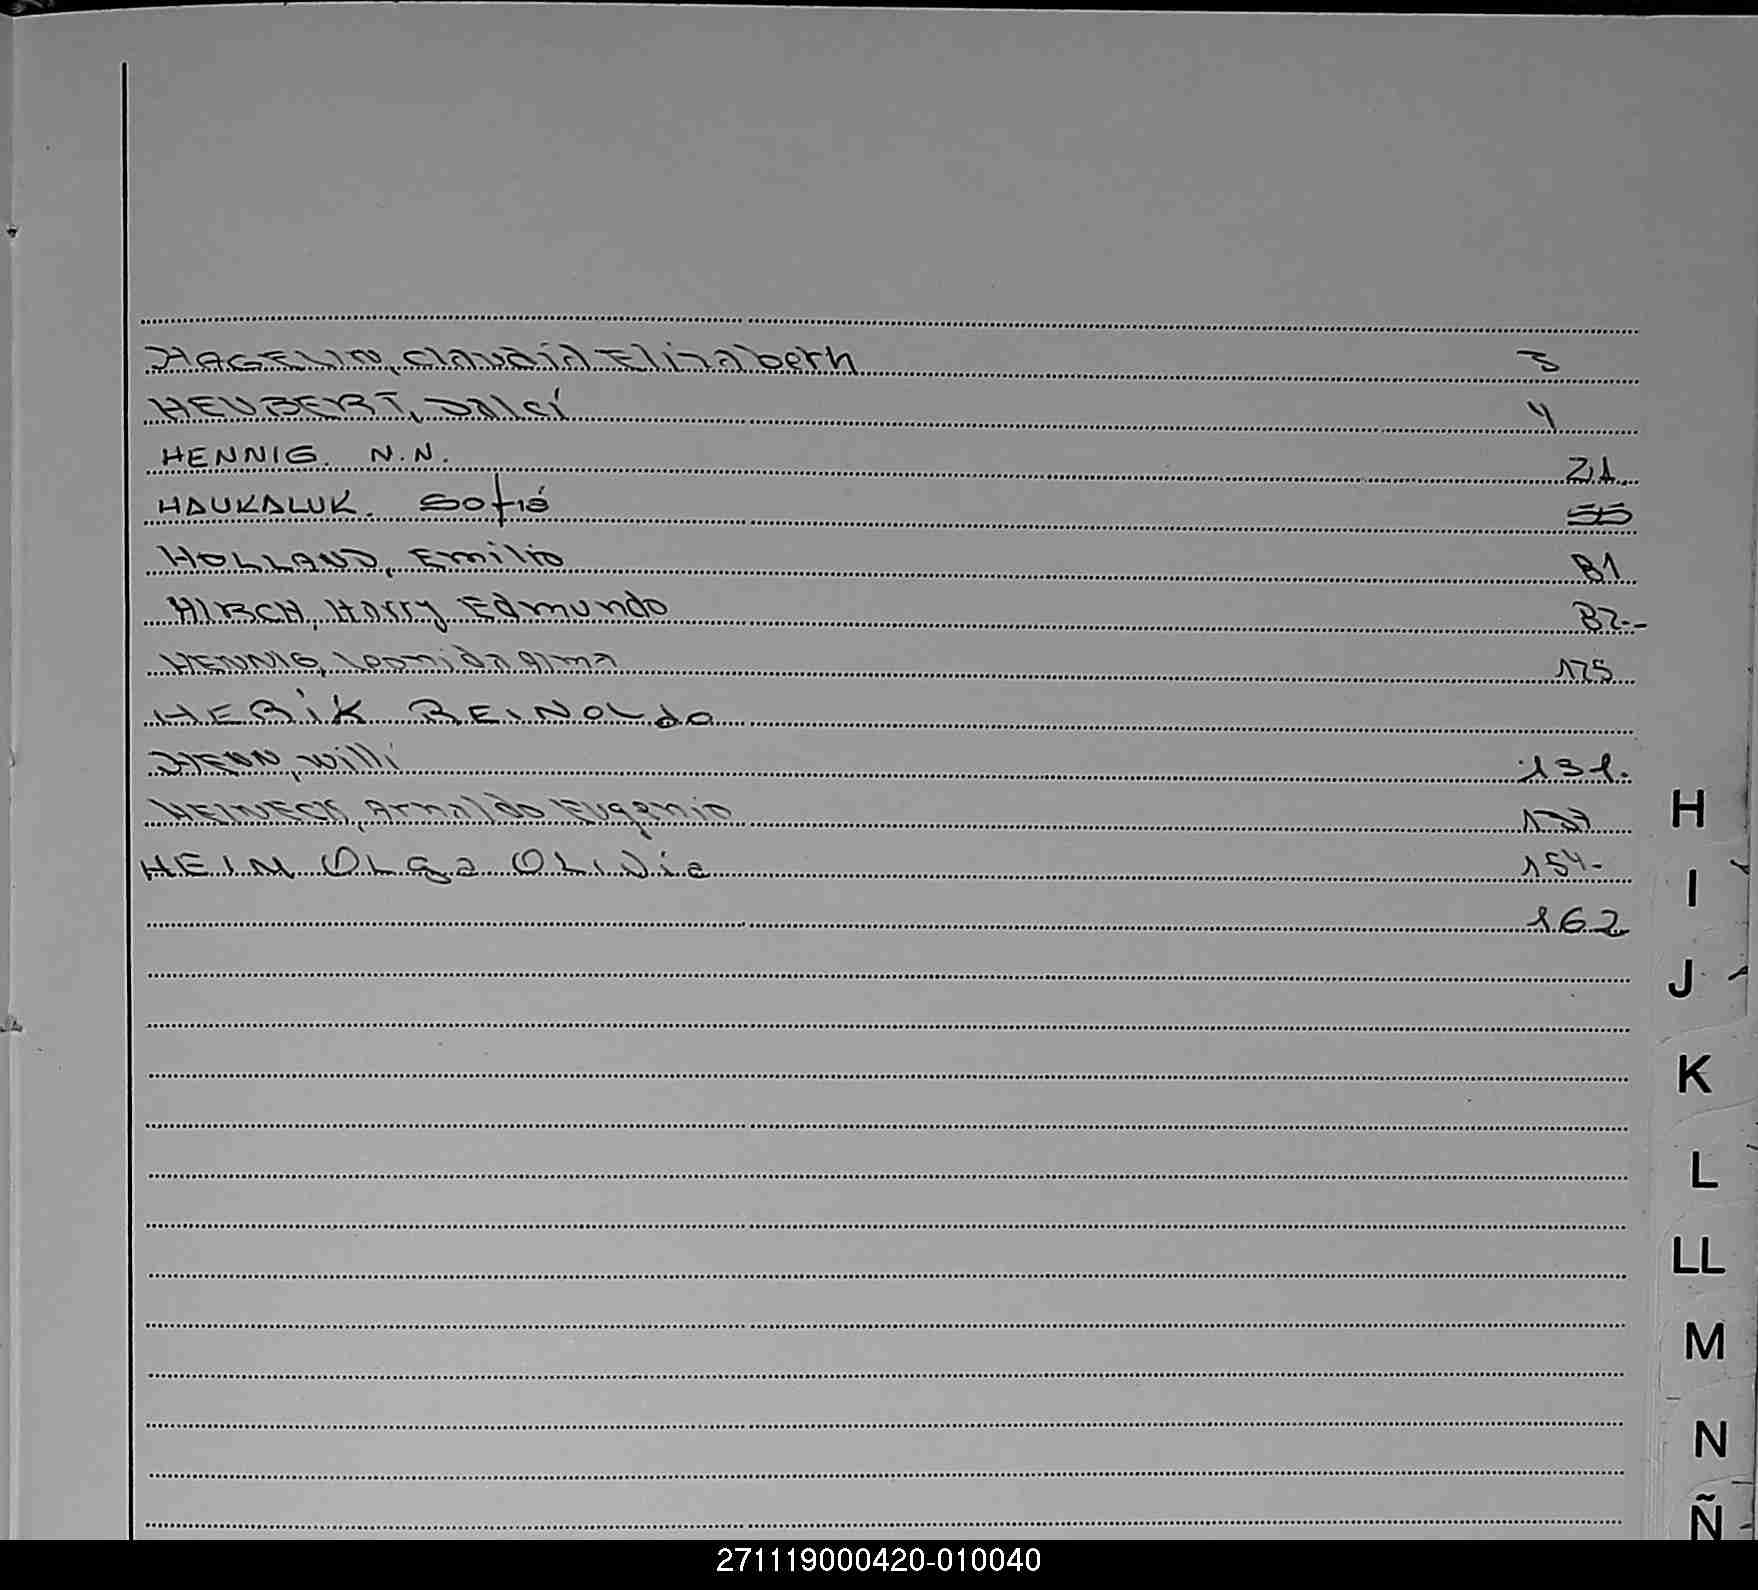 HAGELIN, Claudia Elizabeth 3
HEUBERT, Dalcí 4
HENNIG. N.N. 21.
HAUKALUK. Sofia 55
HOLLAND, Emilio 81
HIRSCH, Harry Edmundo 82--
HENNIG, Leonida Alma 175
HERIK REINOLdo
HENN, Willi 131.
HEINECK, Arnaldo Eugenio
HEIN OLga OLiVia 154-
162
H
I
J
K
L
LL
M
N
Ñ
271119000420-010040